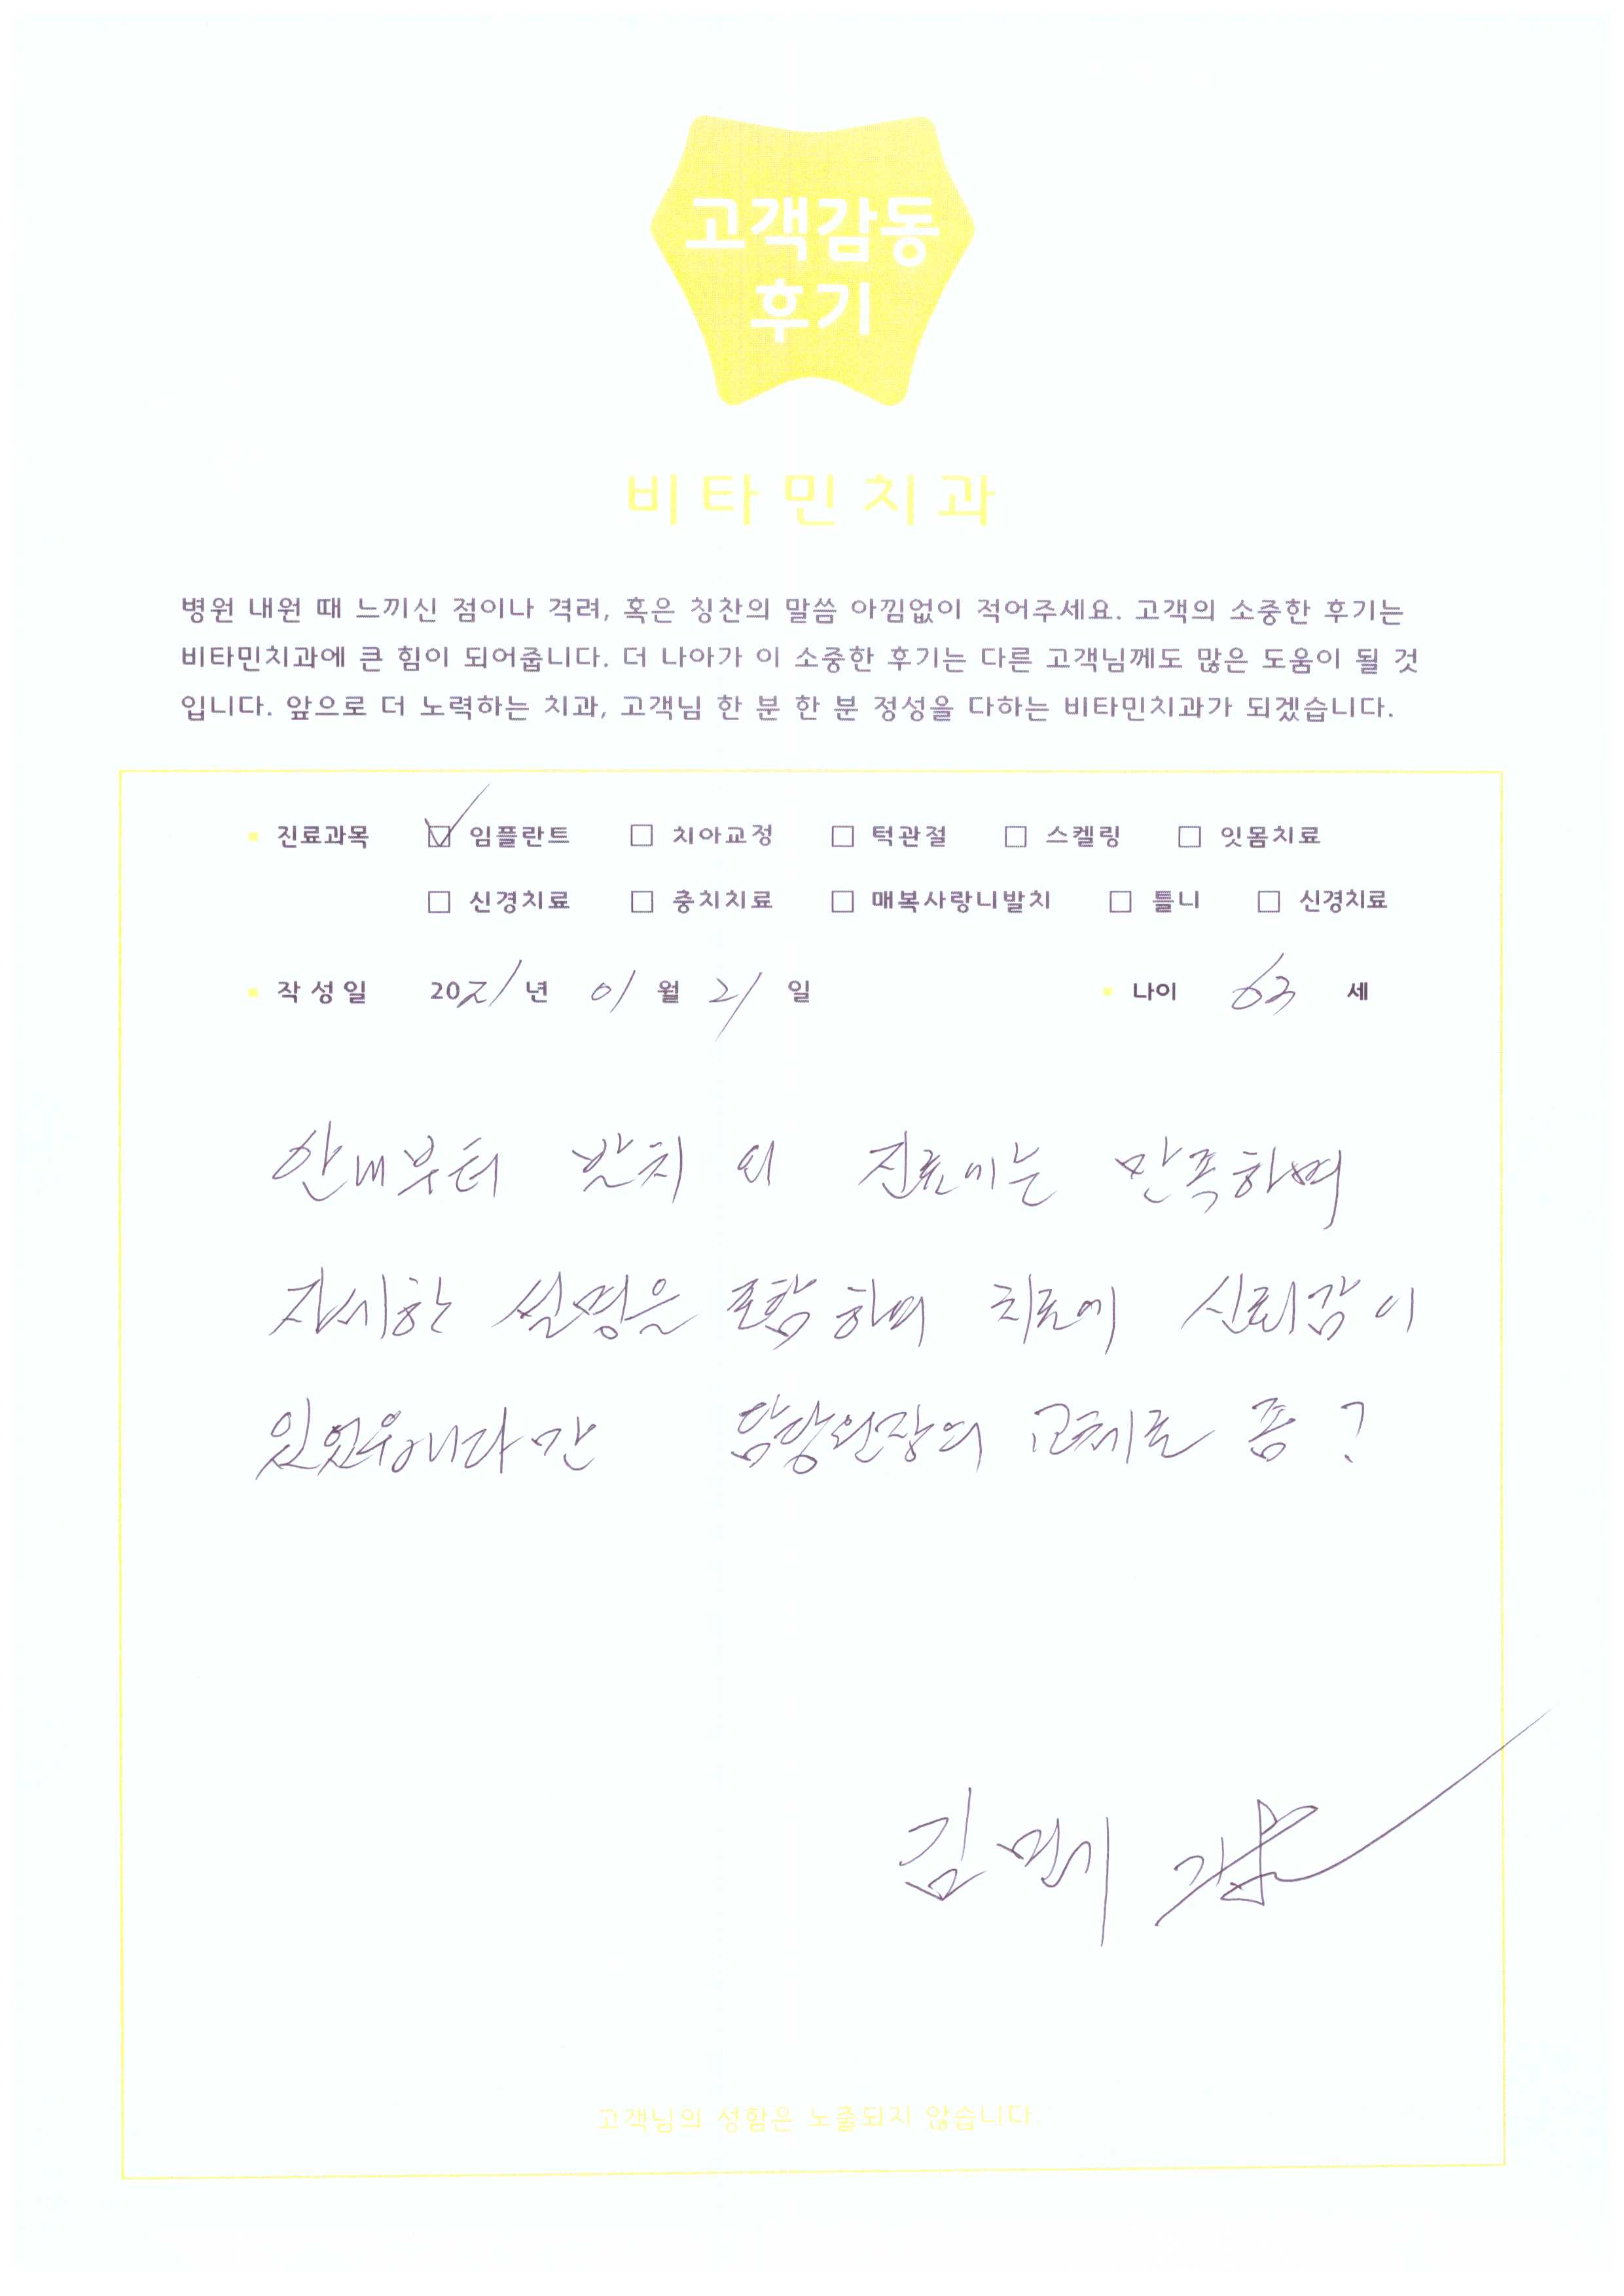 고객감동
후기
비타민치과
병원 내원 때 느끼신 점이나 격려, 혹은 칭찬의 말씀 아낌없이 적어주세요. 고객의 소중한 후기는
비타민치과에 큰 힘이 되어줍니다. 더 나아가 이 소중한 후기는 다른 고객님께도 많은 도움이 될 것
입니다. 앞으로 더 노력하는 치과, 고객님 한 분 한 분 정성을 다하는 비타민치과가 되겠습니다.
진료과목 임플란트 치아교정 턱관절 스켈링 잇몸치료
신경치료 충치치료 매복사랑니발치 틀니 신경치료
작성일 2021년 01월 21일 나이 63 세
안내부터 발치 외 진료에는 만족하며
자세한 설명을 포함하며 치료에 신뢰감이
담당원장의 교체로 좀?
김
고객님의 성함은 노출되지 않습니다.